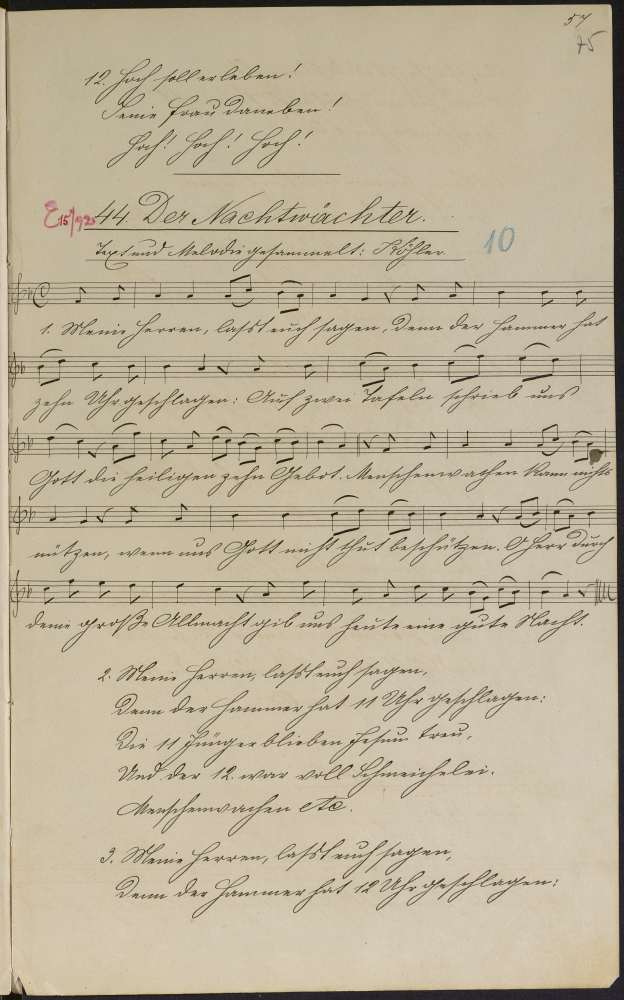 57
75
12. Hoch soll er leben!
Seine Frau daneben!
Hoch! Hoch! Hoch!
44. Der Nachtwächter.
Text und Melodie gesammelt: Köhler.
10
1. Meine Herren, lasst euch sagen, denn der Hammer hat
zehn Uhr geschlagen: Auf zwei Tafeln schrieb uns
Gott die heiligen zehn Gebot. Menschenwachen kann nichts
nützen, wenn uns Gott nicht thut beschützen. O Herr durch
deine große Allmacht gib uns heute eine gute Nacht.
2. Meine Herren, lasst euch sagen,
Denn der Hammer hat 11 Uhr geschlagen:
Die 11 Jünger blieben Jesum treu,
Und der 12. war voll Schmeichelei.
Menschenwachen etc.
3. Meine Herren, lasst euch sagen,
Denn der Hammer hat 12 Uhr geschlagen: